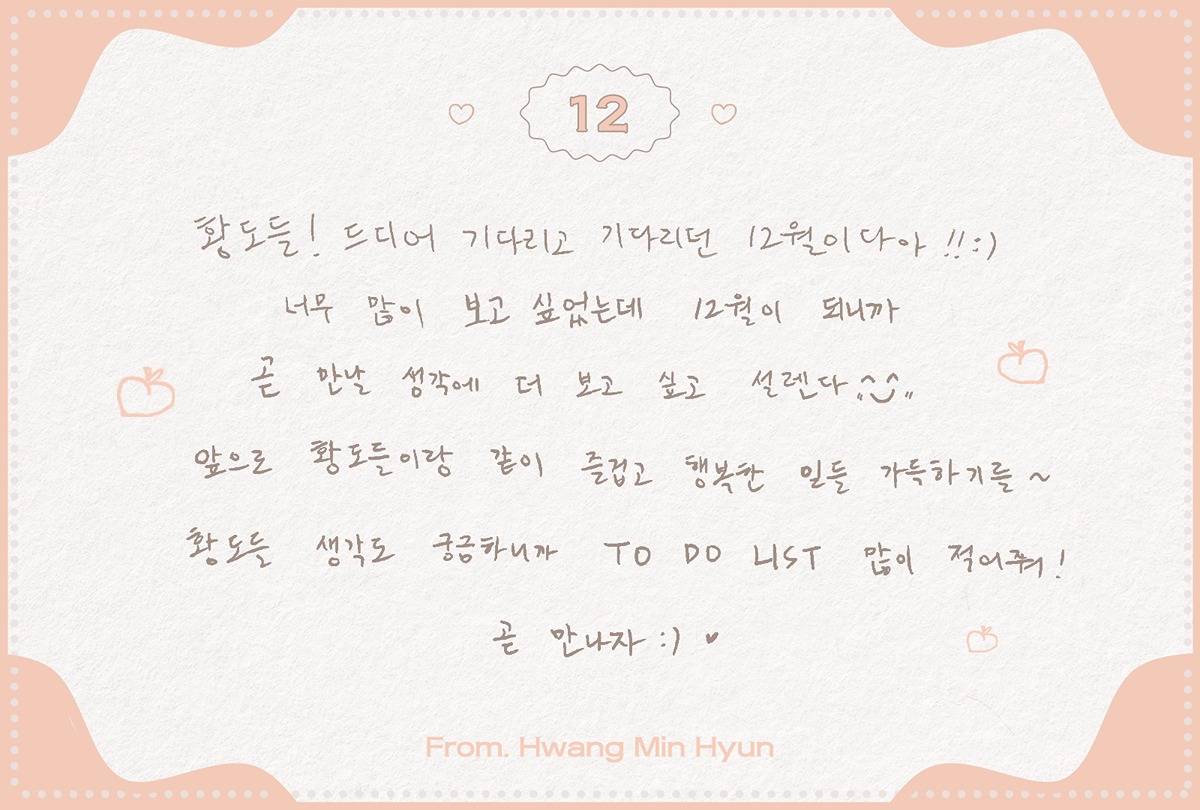 12
황도들! 드디어 기다리고 기다리던 12월이다아 !! :)
너무 많이 보고 싶었는데 12월이 되니까
곧 만날 생각에 더 보고 싶고 설렌다
앞으로 황도들이랑 같이 즐겁고 행복한 일들 가득하기를 ~
황도들 생각도 궁금하니까 TO DO LIST 많이 적어줘!
곧 만나자 :) ♥
From. Hwang Min Hyun